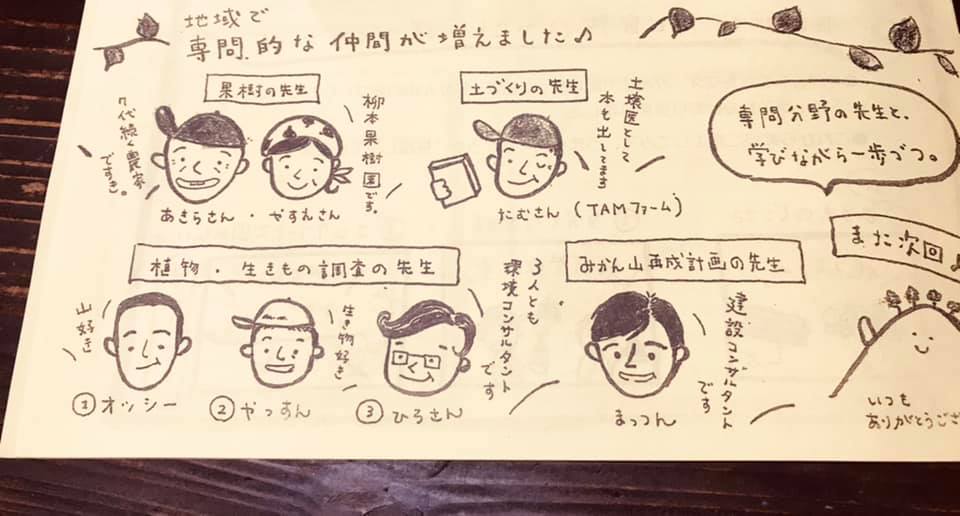 地域で
専門的な仲間が増えました♪
果樹の先生
7代続く農家
ですき。
柳本果樹園です。
あきらさん・やすえさん
土づくりの先生
土壌医として
本も出してます
たむさん（TAMファーム）
専門分野の先生と、
学びながら一歩づつ。
植物・生きもの調査の先生
山好き
①オッシー
生き物好き
②やっすん
3人とも
環境コンサルタント
です
③ひろさん
みかん山再成計画の先生
建設コンサルタント
です
まっつん
また次回♪
いつも
ありがとうござ